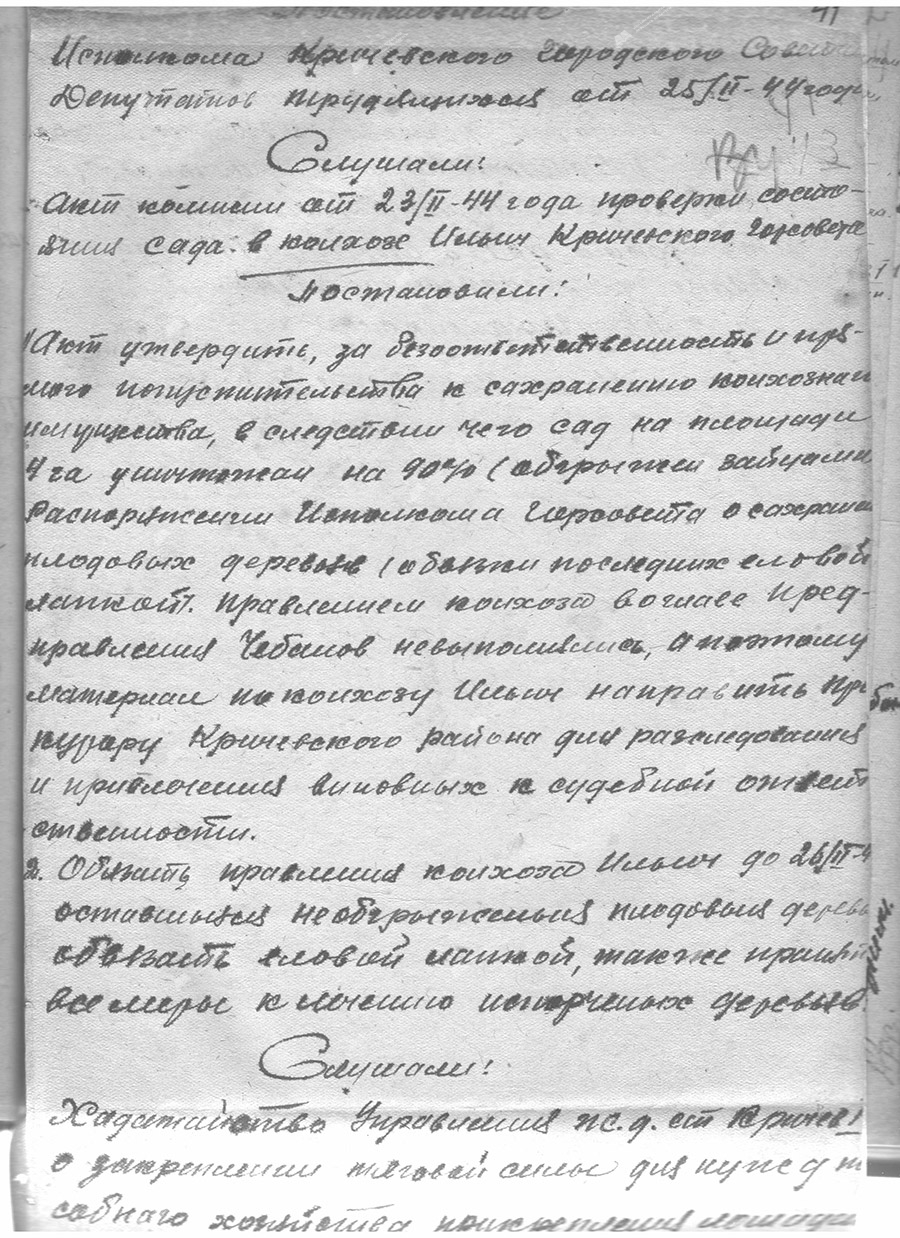 Постановление 41
Исполкома Кричевского Городского Совета
Депутатов трудящихся от 25/II-44 года.
Слушали:
Акт комисии от 23/II-44 года проверки состо-
яния сада в колхозе Ильич Кричевского Горсовета
Постановили:
1 Акт утвердить, за безответственность и пря-
мого попустительства к сахранению колхознаго
имущества, в следствии чего сад на площади
4 га уничтожен на 90% (обгрыжен зайцами
Распоряжении Исполкома Горсовета о сахранении
плодовых деревьев (обвязки последних еловой
лапкой). Правлением колхоза во главе Пред-
правления Чебанов невыполнялись, а поэтому
материал по колхозу Ильич направить Про
курору Кричевского района для разследования
и привлечения виновных к судебной ответ
ственности.
2. Обязать правления колхоза Ильич до 26/II-4
оставшыяся необгрыженыя плодовыя деревья
обвязать еловой лапкой, также принять
все меры к лечению испорченых деревьев.
Слушали:
Хадатайство Управления ж.д. ст Кричев I
о закреплении тяговой силы для нужд п
собнаго хозяйства прикрепления лошади